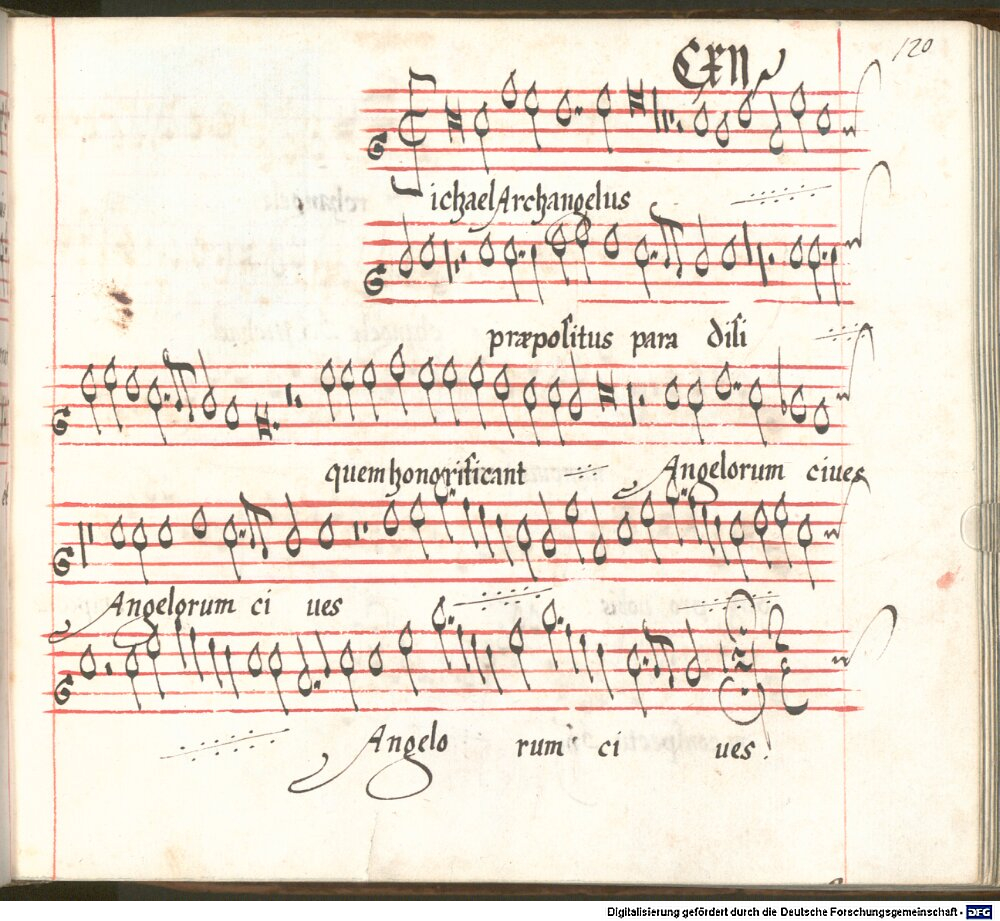 120
CXII
ichael Archangelus
præpositus para disi
quem honorificant Angelorum ciues
Angelorum ci ues
Angelo rum ci ues.
Digitalisierung gefördert durch die Deutsche Forschungsgemeinschaft - DFG